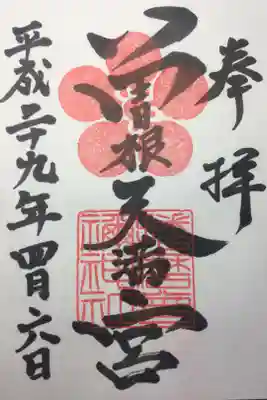 奉拝
曽根天満宮
平成二十九年四月六日